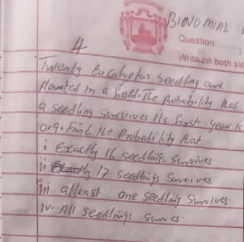 BINOMIAL
Question
Write on both sid
4
Twenty Eucalyptus Seedling are
Planted in a Field. The Probability that
a seedling survives its first year is
0.9. Find the Probability that
i Exactly 16 seedlings Survives
ii 17 seedlings Survives
iii atleast one seedling Survives.
iv. All seedlings